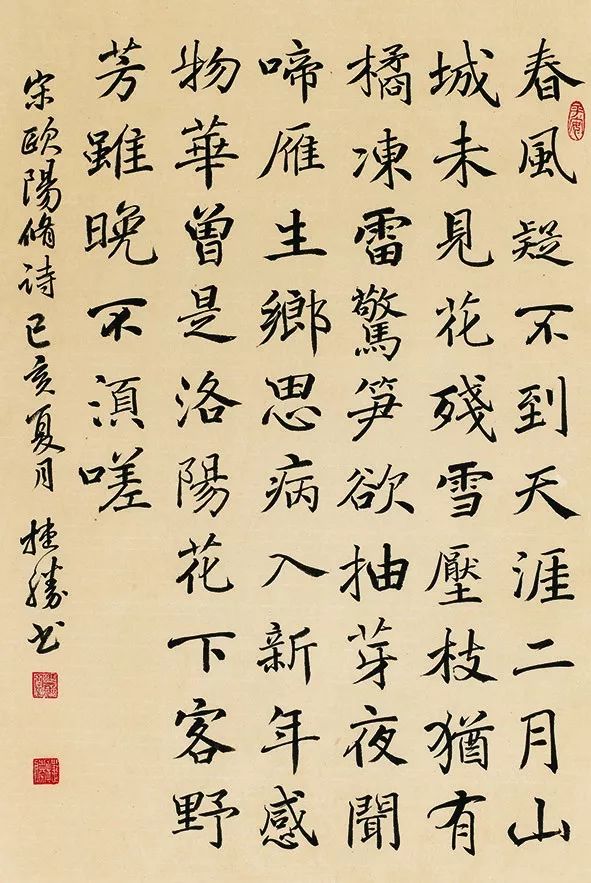 春風疑不到天涯二月山
城未見花殘雪壓枝猶有
橘凍雷驚笋欲抽芽夜聞
啼雁生鄉思病入新年感
物華曾是洛陽花下客野
芳雖晚不湏嗟
宋歐陽脩詩己亥夏月 勝书